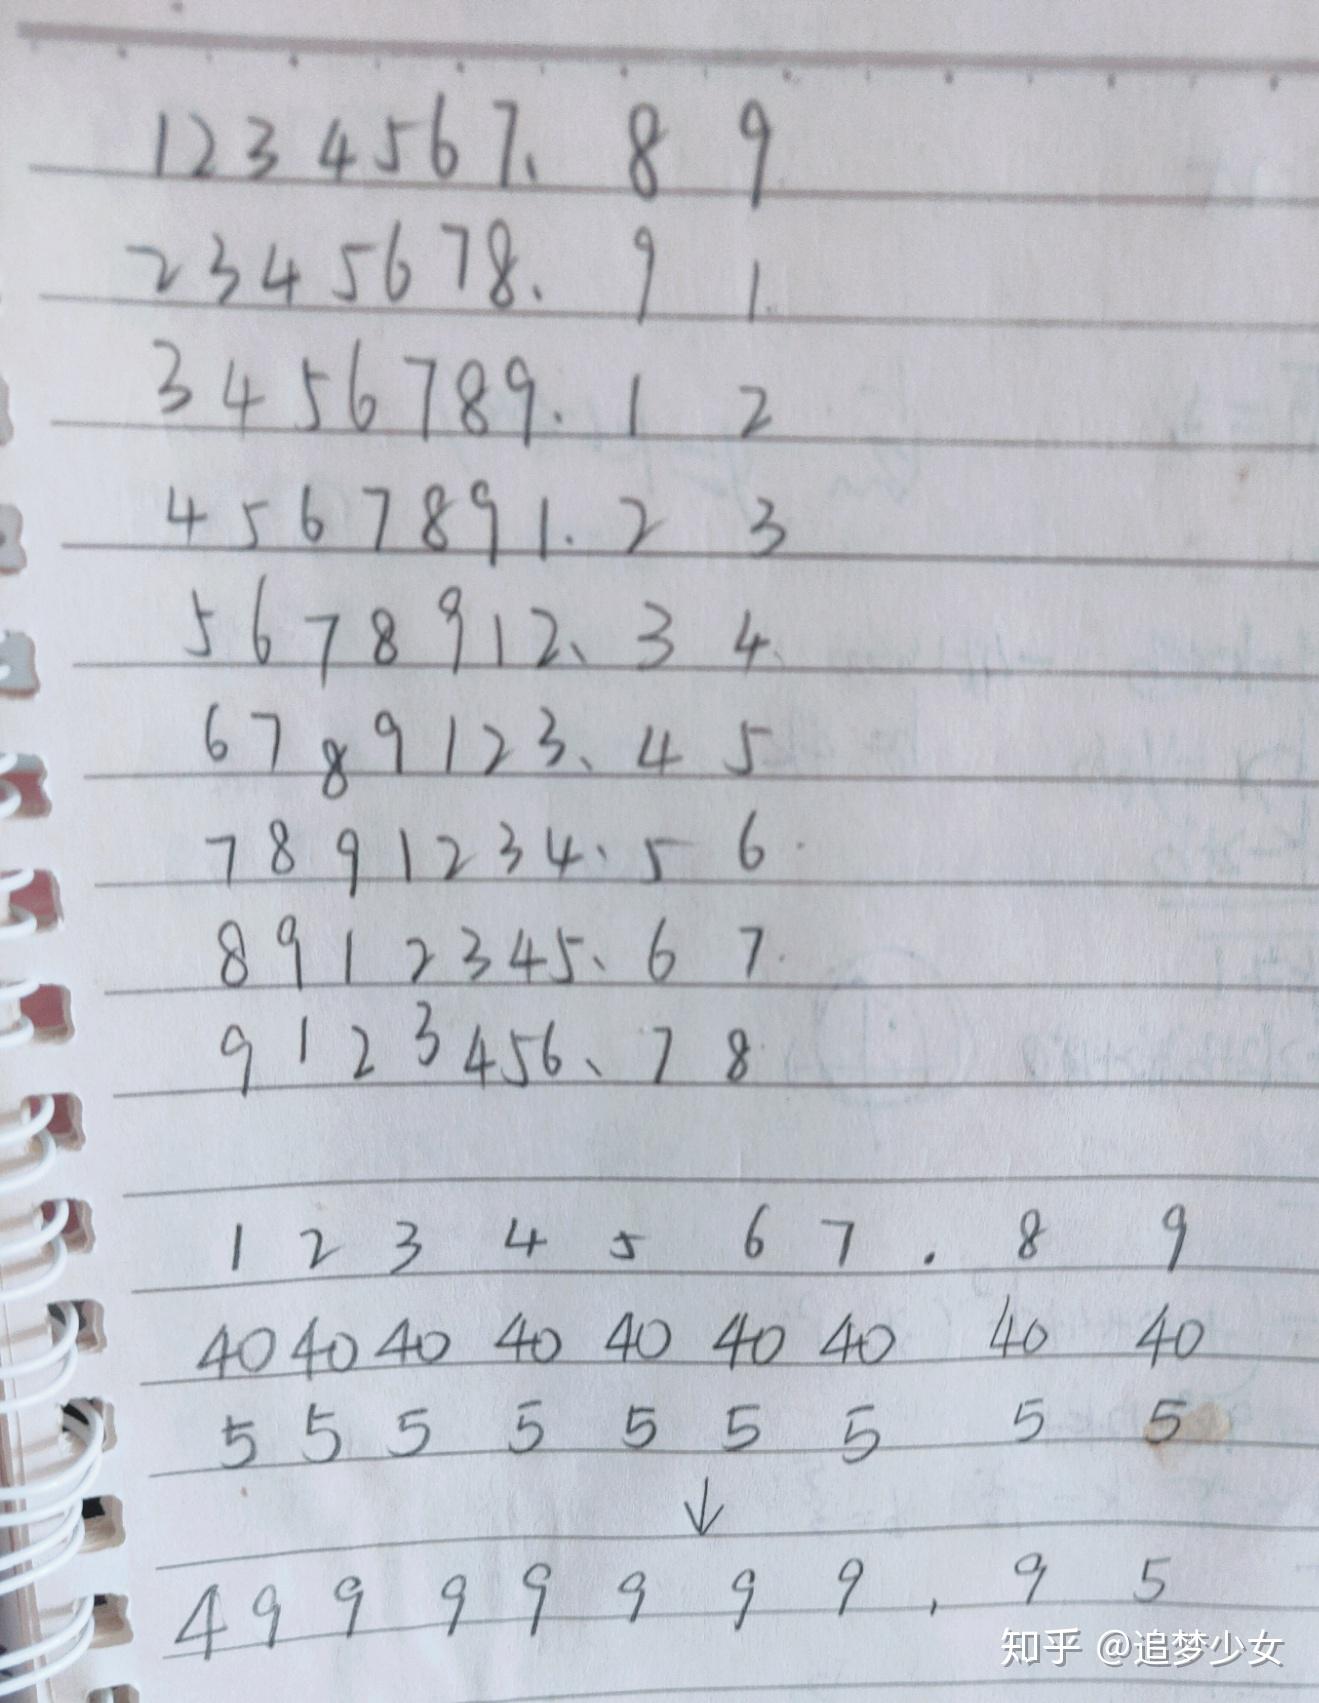 1234567.89
2345678.91
3456789.12
4567891.23
5678912.34
6789123.45
7891234.56
8912345.67
9123456.78
1 2 3 4 5 6 7 . 8 9
40 40 40 40 40 40 40 40 40
5 5 5 5 5 5 5 5 5
↓
4 9 9 9 9 9 9 9 . 9 5
知乎 @追梦少女